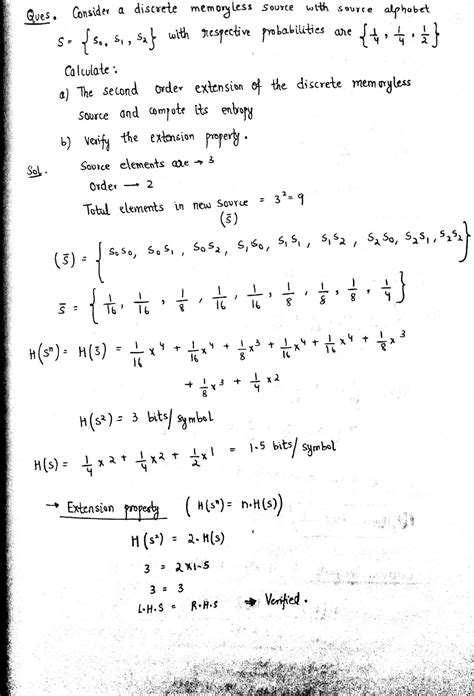 Ques. Consider a discrete memoryless source with source alphabet
S = {S₀, S₁, S₂} with respective probabilities are {1/4, 1/4, 1/2}
Calculate:
a) The second order extension of the discrete memoryless
source and compute its entropy
b) Verify the extension property.
Sol. Source elements are → 3
Order → 2
Total elements in new source = 3² = 9
(S̄)
(S̄) = {S₀S₀, S₀S₁, S₀S₂, S₁S₀, S₁S₁, S₁S₂, S₂S₀, S₂S₁, S₂S₂}
S̄ = {1/16, 1/16, 1/8, 1/16, 1/16, 1/8, 1/8, 1/8, 1/4}
H(Sⁿ) = H(S̄) = 1/16 x 4 + 1/16 x 4 + 1/8 x 3 + 1/16 x 4 + 1/16 x 4 + 1/8 x 3
+ 1/8 x 3 + 1/4 x 2
H(S²) = 3 bits/symbol
H(S) = 1/4 x 2 + 1/4 x 2 + 1/2 x 1 = 1.5 bits/symbol
→ Extension property (H(Sⁿ) = n.H(S))
H(S²) = 2.H(S)
3 = 2x1.5
3 = 3
L.H.S = R.H.S → Verified.